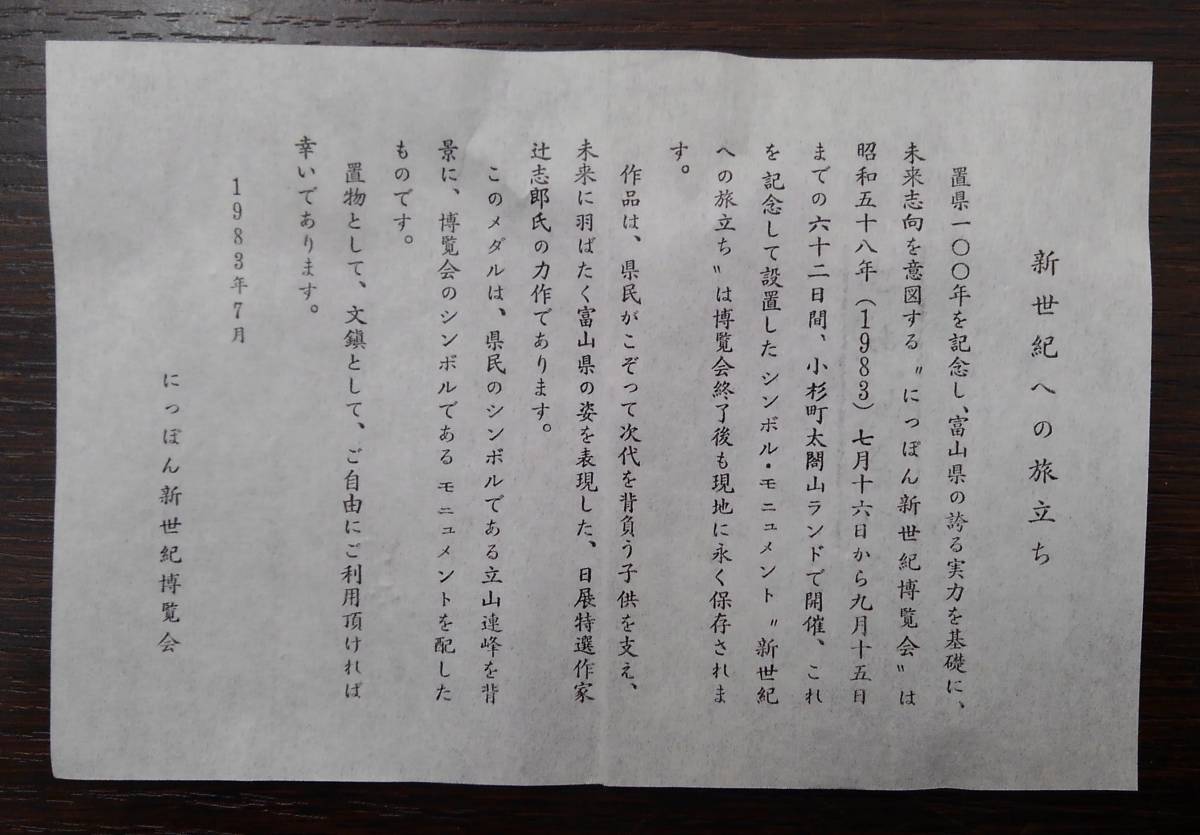 新世紀への旅立ち
置県一〇〇年を記念し、富山県の誇る実力を基礎に、
未来志向を意図する〝にっぽん新世紀博覧会〟は
昭和五十八年（1983）七月十六日から九月十五日
までの六十二日間、小杉町太閤山ランドで開催、これ
を記念して設置したシンボル・モニュメント〝新世紀
への旅立ち〟は博覧会終了後も現地に永く保存されま
す。
作品は、県民がこぞって次代を背負う子供を支え、
未来に羽ばたく富山県の姿を表現した、日展特選作家
辻志郎氏の力作であります。
このメダルは、県民のシンボルである立山連峰を背
景に、博覧会のシンボルであるモニュメントを配した
ものです。
置物として、文鎮として、ご自由にご利用頂ければ
幸いであります。
1983年7月
にっぽん新世紀博覧会